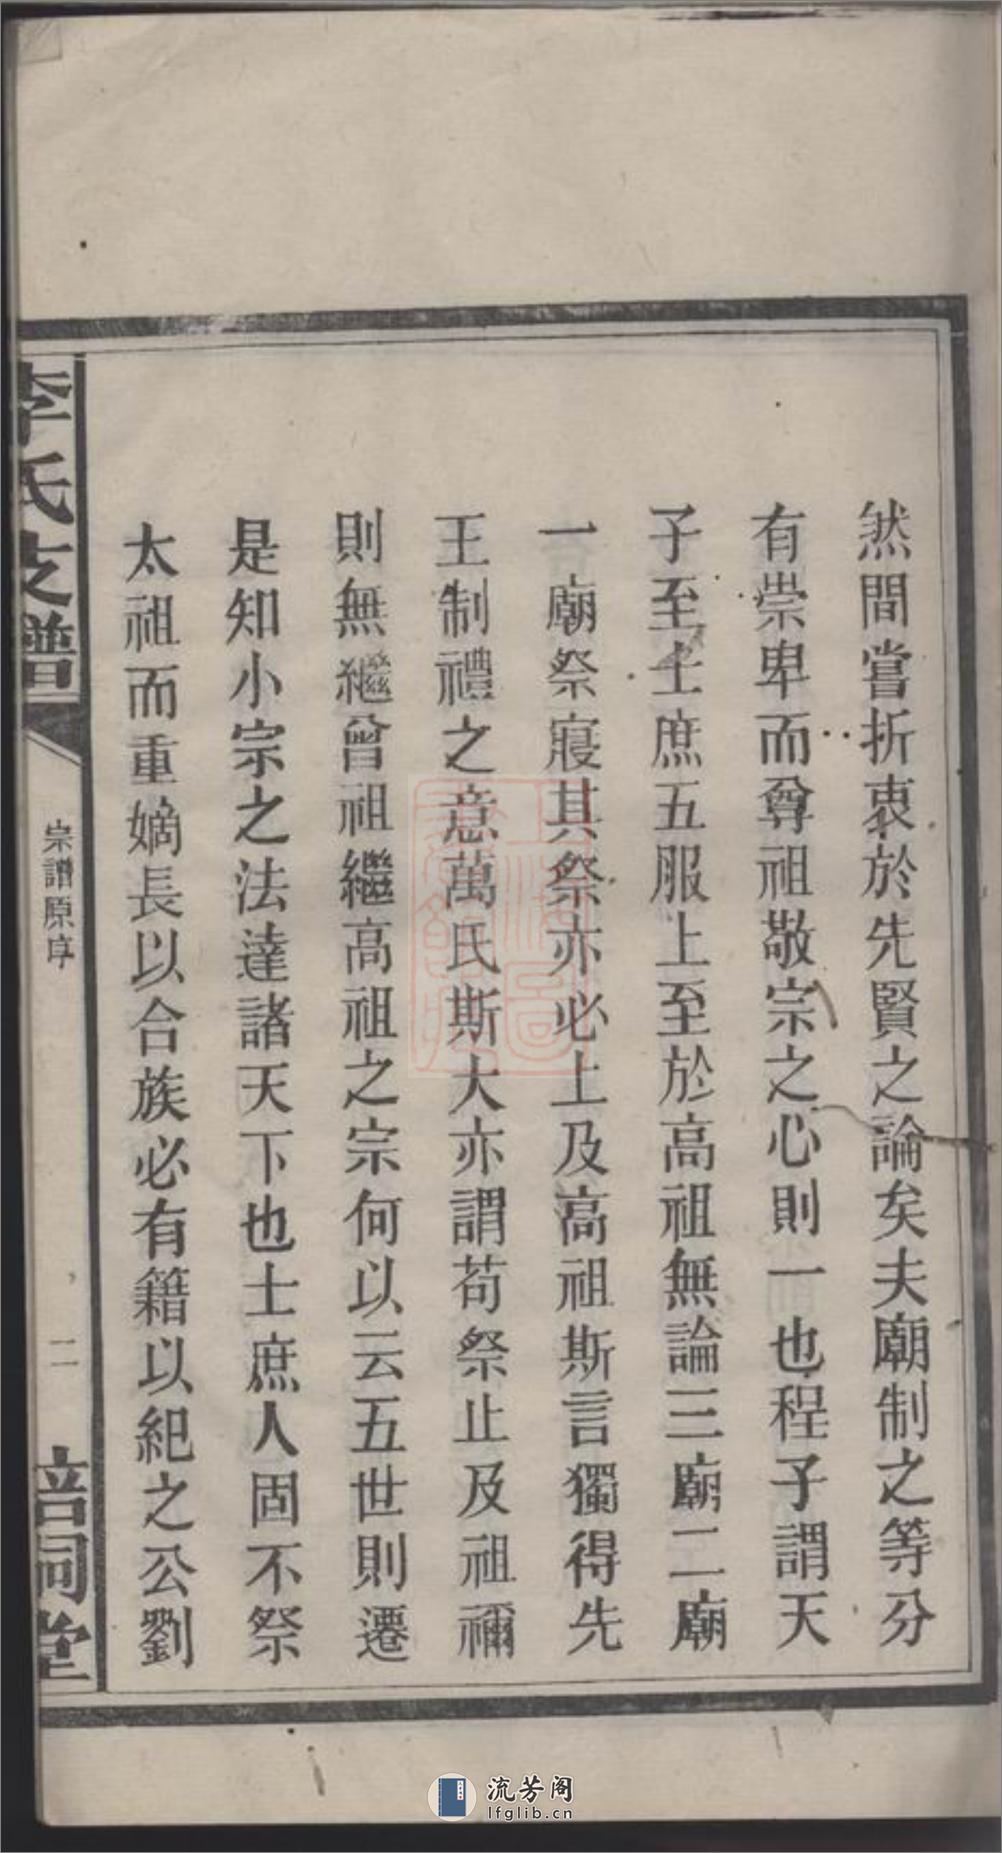 然間嘗折衷於先賢之論矣夫廟制之等分
有崇卑而尊祖敬宗之心則一也程子謂天
子至士庶五服上至於高祖無論三廟二廟
一廟祭寢其祭亦必上及高祖斯言獨得先
王制禮之意萬氏斯大亦謂苟祭止及祖禰
則無繼曾祖繼高祖之宗何以云五世則遷
是知小宗之法達諸天下也士庶人固不祭
太祖而重嫡長以合族必有籍以紀之公劉
李氏支譜
宗譜原序
二
祠堂
流芳阁
lfglib.cn